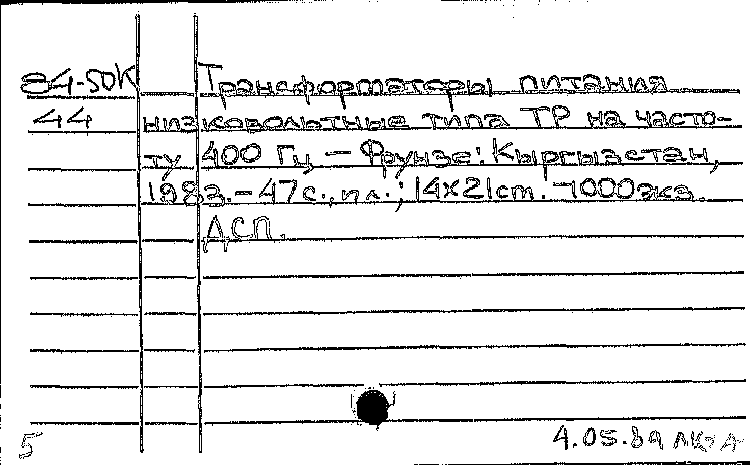 84-50К Трансформаторы питания
44 низковольтные типа ТР на часто-
ту 400 Гц. – Фрунзе: Кыргызстан,
1983. – 47 с., ил.; 14х21 cm. – 1000 экз.
ДСП.
5 4.05.89